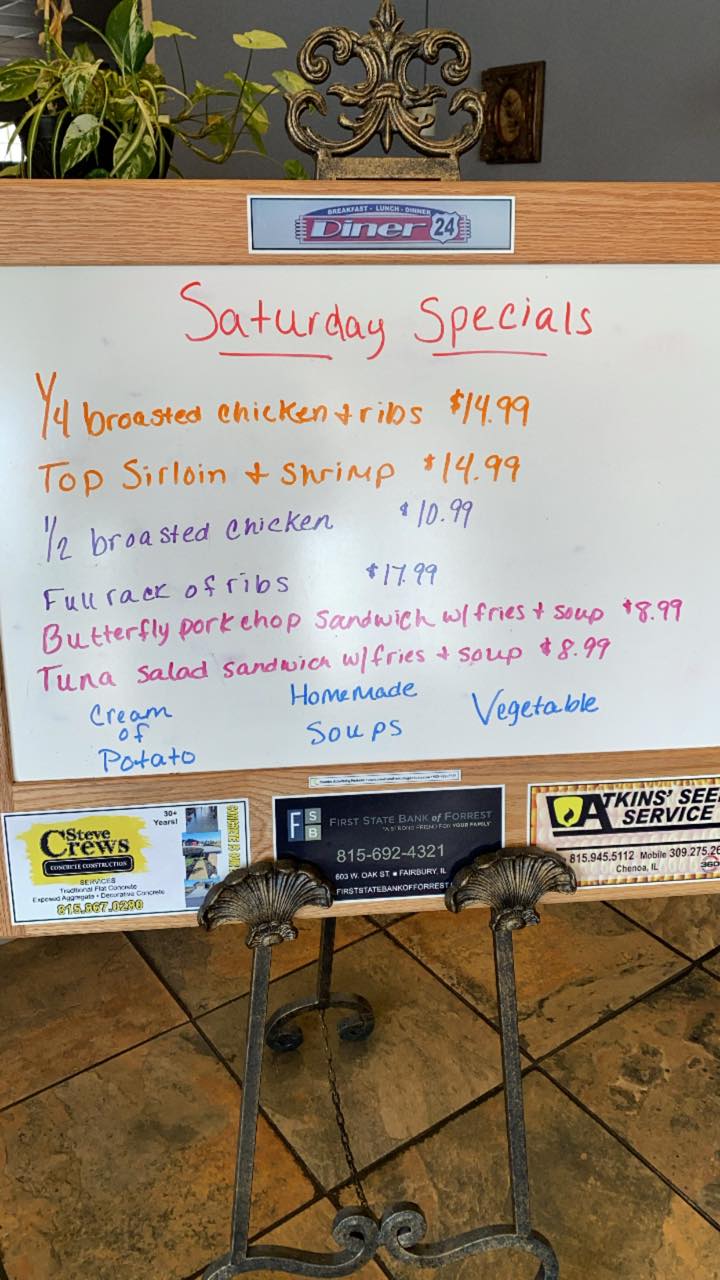 BREAKFAST - LUNCH - DINNER
Diner 24
Saturday Specials
1/4 broasted chicken + ribs $14.99
Top Sirloin + shrimp $14.99
1/2 broasted chicken $10.99
Full rack of ribs $17.99
Butterfly pork chop sandwich w/ fries + soup $8.99
Tuna salad sandwich w/ fries + soup $8.99
Cream of Potato
Homemade Soups
Vegetable
Steve Crews
CONCRETE CONSTRUCTION
30+ Years!
SERVICES
Traditional Flat Concrete
Exposed Aggregate • Decorative Concrete
815.867.0290
FSB
FIRST STATE BANK of FORREST
"A STRONG FRIEND FOR YOUR FAMILY"
815-692-4321
603 W. OAK ST. ■ FAIRBURY, IL
FIRSTSTATEBANKOFFORREST
ATKINS' SEE
SERVICE
815.945.5112 Mobile 309.275.26
Chenoa, IL
360